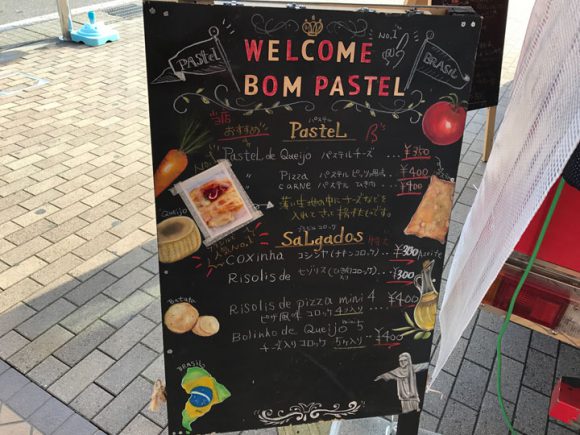 No.1
PasteL
BRASIL
WELCOME
BOM PASTEL
当店
おすすめ
パステゥー
PasteL
No.
PasteL de Queijo パステルチーズ ... ¥350
Pizza パステル ピッツァ風味 ... ¥400
CARNE パステル ひき肉 ... ¥400
薄い生地の中にチーズなどを
入れてさっと揚げたパイです。
Queijo
人気No.1
SaLgados
Coxinha コシンヤ(チキンコロッケ) ... ¥300
Azeite
Risolis de ... ¥300
Risolis de pizza mini 4 ¥400
ピザ風味 コロッケ 4ヶ入り
Batata
Bolinho de Queijo mini 5
チーズ入り コロッケ 5ヶ入り ... ¥400
BRASIL